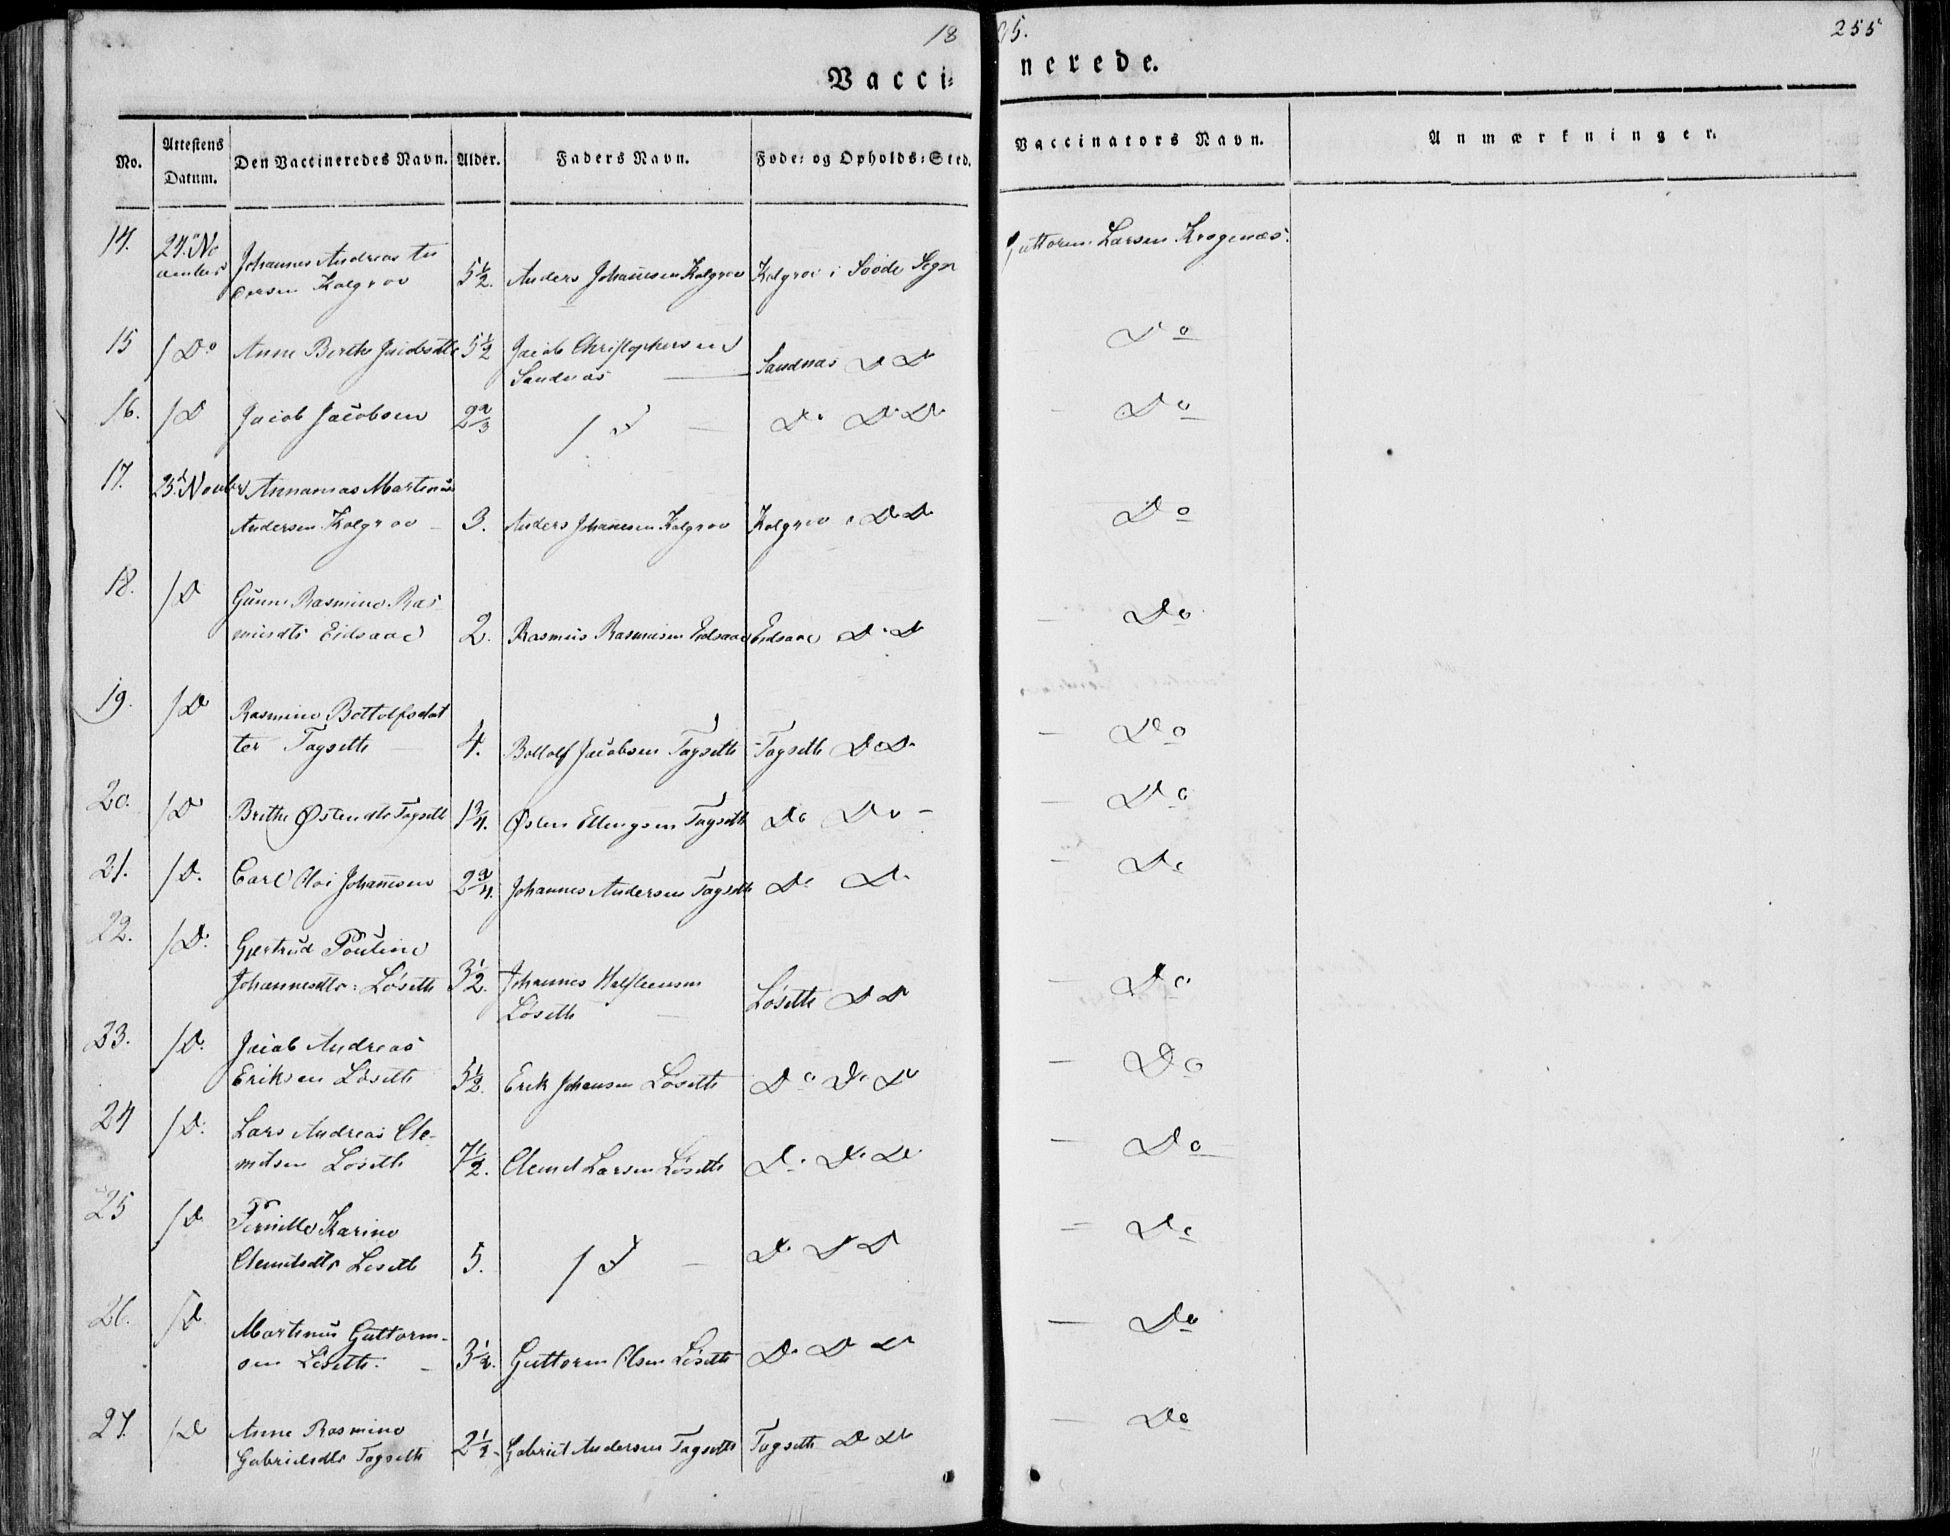 18 35. 255
Vacci- nerede.
No. Attestens Datum. Den Vaccineredes Navn. Alder. Faders Navn. Føde- og Opholds-Sted. Vaccinators Navn. Anmærkninger.
14. 24. No vember Johannes Andreas An
dersen Kolgrov 5 1/2. Anders Johannesen Kolgrov Kolgrov i Sogn Guttorm Larsen Krogenæs.
15 / Do Anne Berthe Jacobsdtr 5 1/2 Jacob Christophersen
Sandnæs Sandnæs D D Do
16. / D Jacob Jacobsen 2 2/3 / D D D Do
17. 25 November Annanias Martinus
Andersen Kolgrov 3. Anders Johannesen Kolgrov Kolgrov D D Do
18. / D Gunne Rasmine Ras
musdtr Eidsaae 2. Rasmus Rasmusen Eidsaae Eidsaae D D Do
19. / D Rasmine Bottolfsdat
ter Tagseth 4. Bottolf Jacobsen Tagseth Tagseth D D Do
20. / D Brithe Østendtr Tagseth 1 3/4. Østen Ellingsen Tagseth Do Do Do
21. / D. Carl Johannesen 2 3/4. Johannes Andersen Tagseth D D Do
22. / D. Gjertrud Pouline
Johannesdtr: Løseth 3 1/2. Johannes
Løseth Løseth D D Do
23. / D. Jacob Andreas
Eriksen Løseth 5 1/2. Erik Johansen Løseth Do D D Do
24 / D. Lars Andreas Cle-
metsen Løseth 7 1/2. Clemet Larsen Løseth D D D Do
25 / D Pernille Karine
Clemetsdtr Løseth 5. / D D D Do
26. / D Martinus Guttorm-
sen Løseth. 3 1/2. Guttorm Olsen Løseth D D D Do
27. / D Anne Rasmine
Gabrielsdtr Tagseth 2 1/2. Gabriel Andersen Tagseth Tagseth D D Do